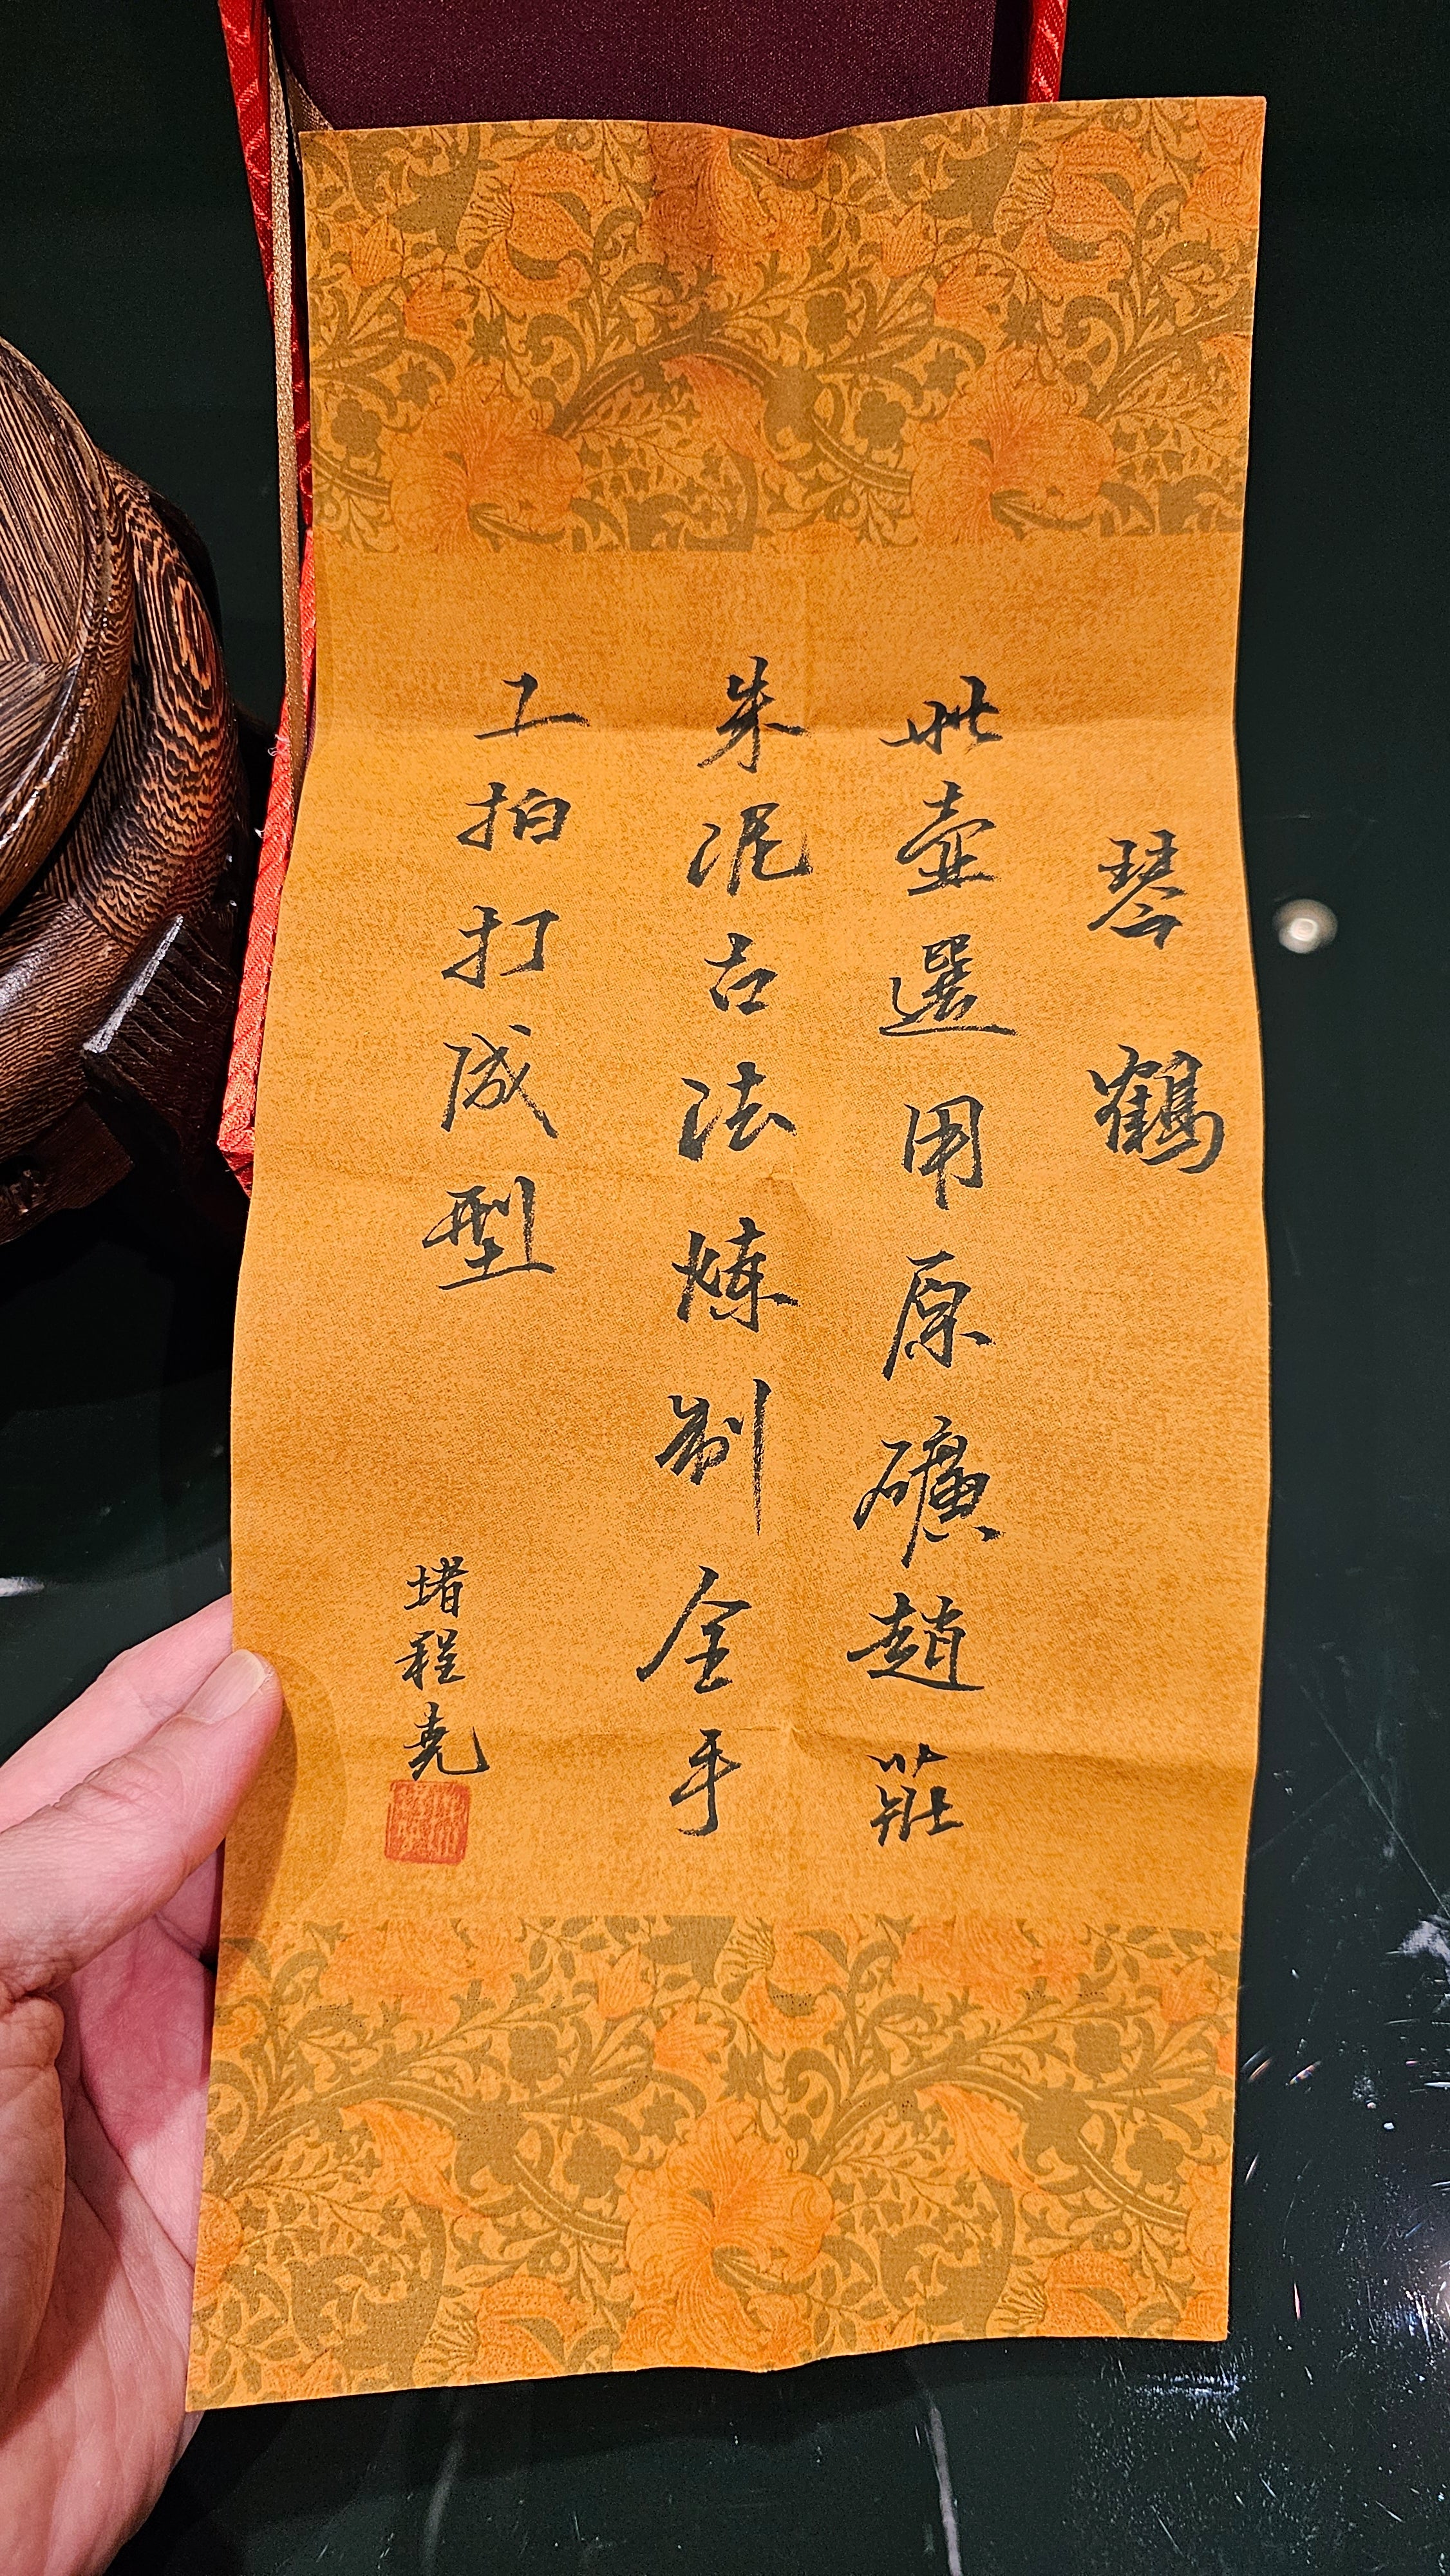 琴鶴
此壺選用原礦趙莊
朱泥古法煉制全手
工拍打成型
堵程堯